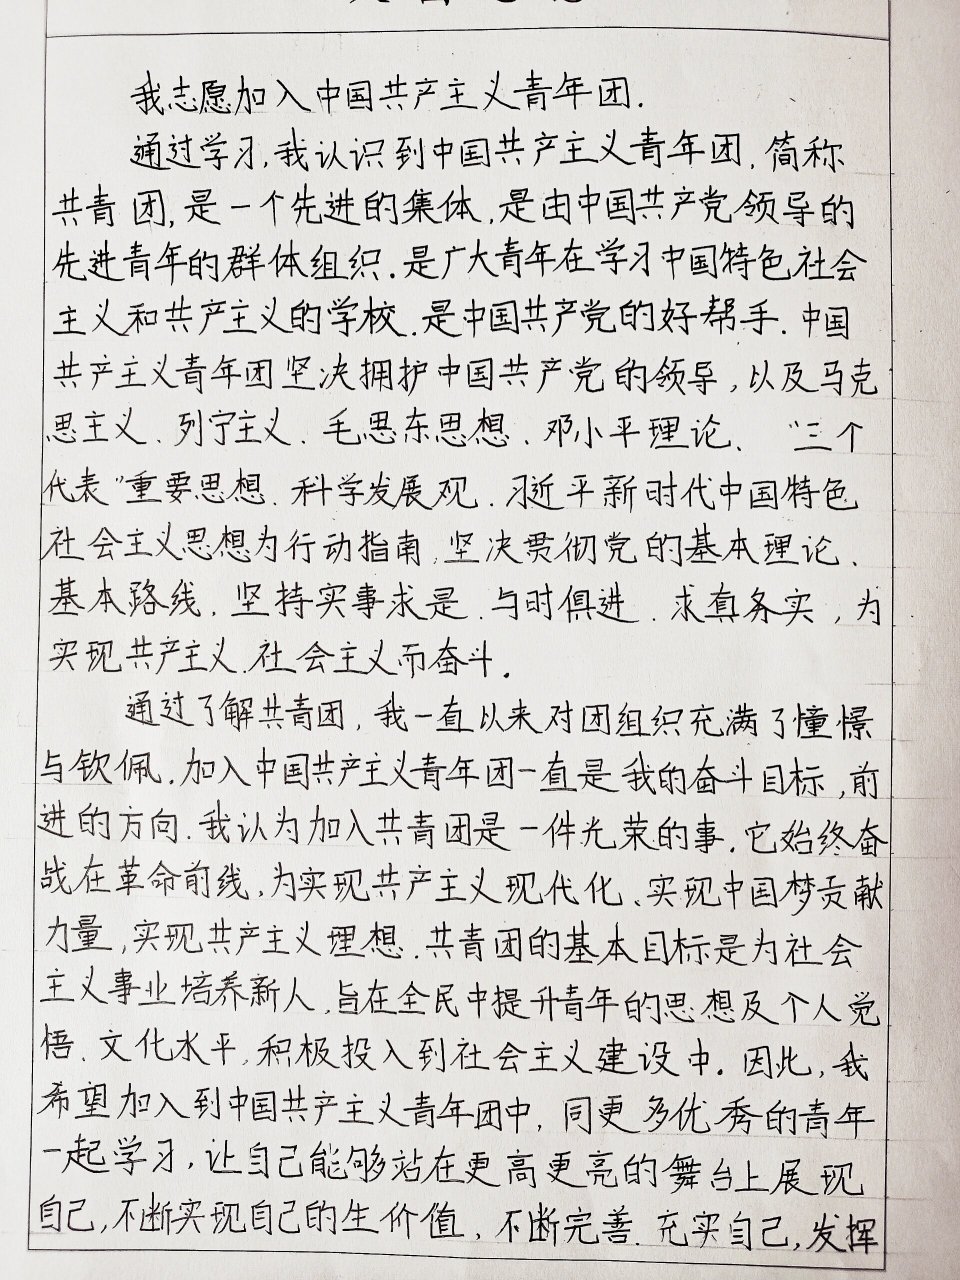 我志愿加入中国共产主义青年团.
通过学习,我认识到中国共产主义青年团.简称
共青团,是一个先进的集体,是由中国共产党领导的
先进青年的群体组织.是广大青年在学习中国特色社会
主义和共产主义的学校.是中国共产党的好帮手.中国
共产主义青年团坚决拥护中国共产党的领导,以及马克
思主义、列宁主义、毛思东思想、邓小平理论、“三个
代表”重要思想、科学发展观、习近平新时代中国特色
社会主义思想为行动指南,坚决贯彻党的基本理论、
基本路线.坚持实事求是、与时俱进、求真务实,为
实现共产主义、社会主义而奋斗.
通过了解共青团,我一直以来对团组织充满了憧憬
与钦佩.加入中国共产主义青年团一直是我的奋斗目标,前
进的方向.我认为加入共青团是一件光荣的事.它始终奋
战在革命前线,为实现共产主义现代化、实现中国梦贡献
力量,实现共产主义理想.共青团的基本目标是为社会
主义事业培养新人,旨在全民中提升青年的思想及个人觉
悟、文化水平,积极投入到社会主义建设中.因此,我
希望加入到中国共产主义青年团中,同更多优秀的青年
一起学习,让自己能够站在更高更亮的舞台上展现
自己,不断实现自己的生价值,不断完善、充实自己,发挥